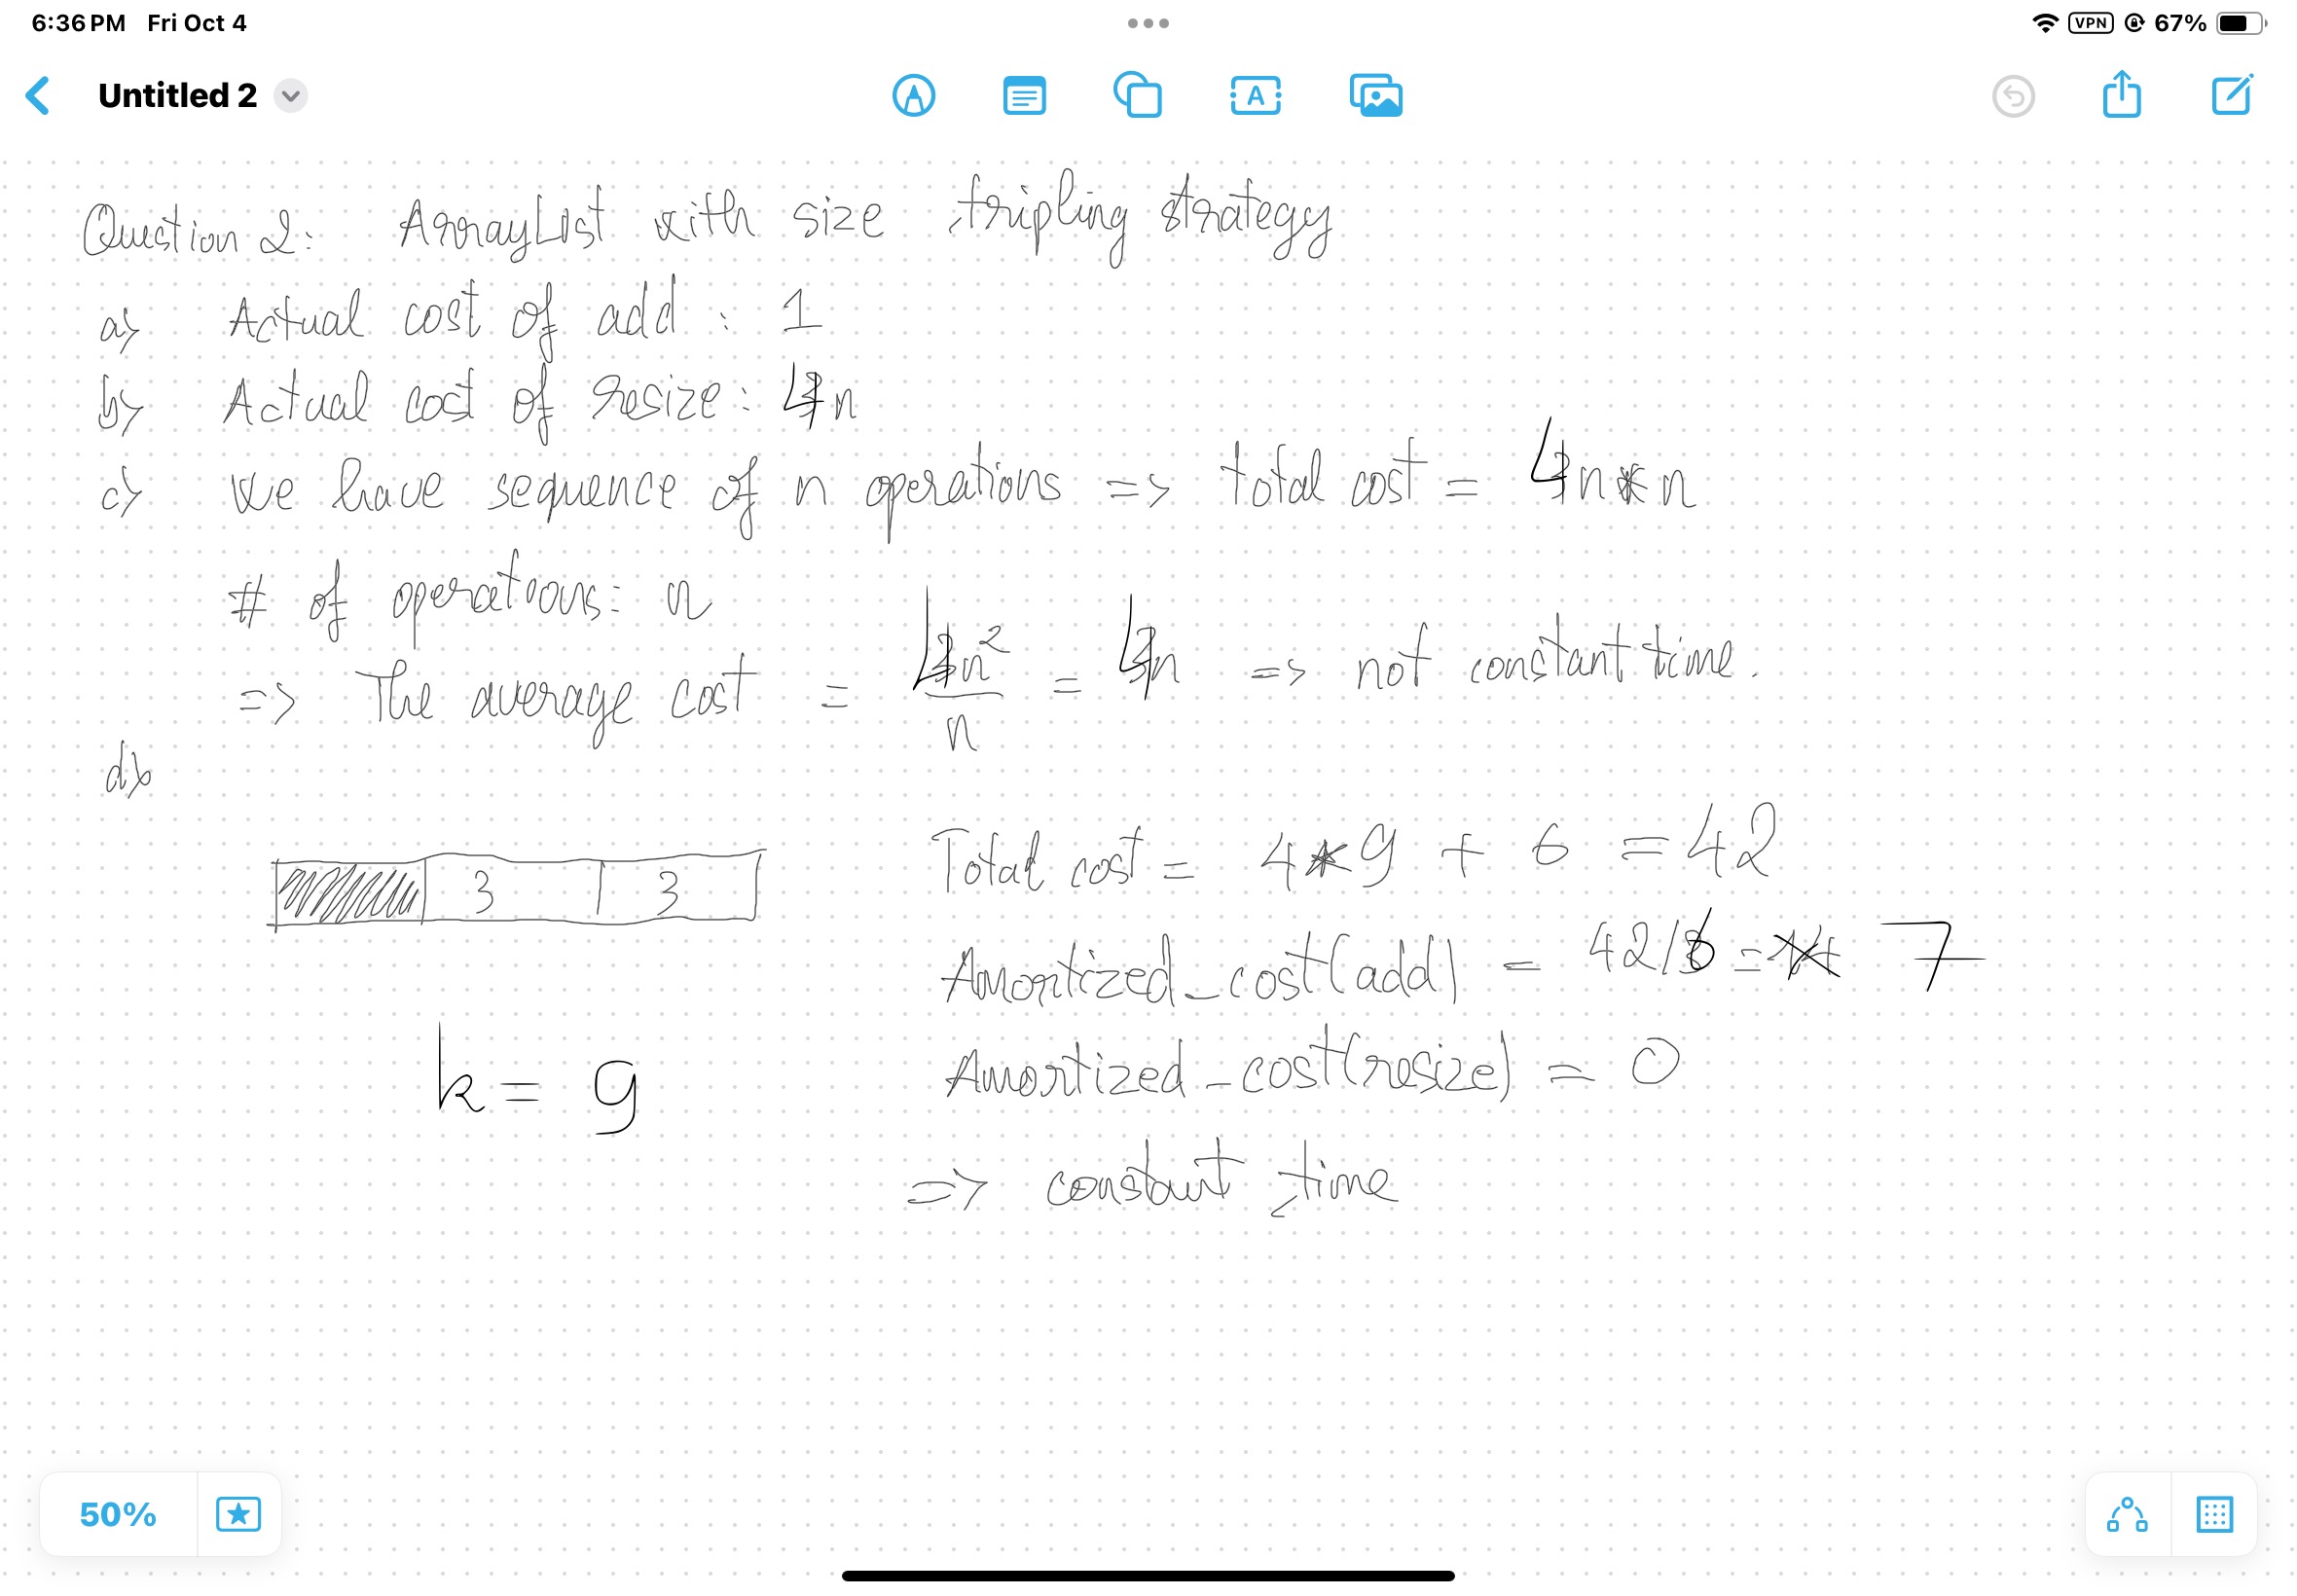 6:36 PM Fri Oct 4
VPN 67%
Untitled 2
A
Question 2: ArrayList with size tripling strategy
a) Actual cost of add : 1
b) Actual cost of resize : 4n
c) We have sequence of n operations => total cost = 4n * n
# of operations: n
=> The average cost = 4n² / n = 4n => not constant time.
d)
3 3
Total cost = 4 * 9 + 6 = 42
Amortized_cost(add) = 42/6 = 7
k = 9
Amortized_cost(resize) = 0
=> constant time
50%